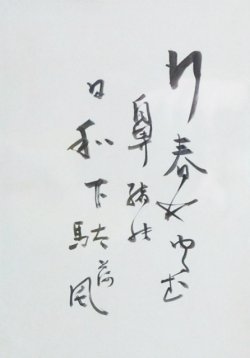 行春やゆるむ
鼻緒の
日和下駄
荷風